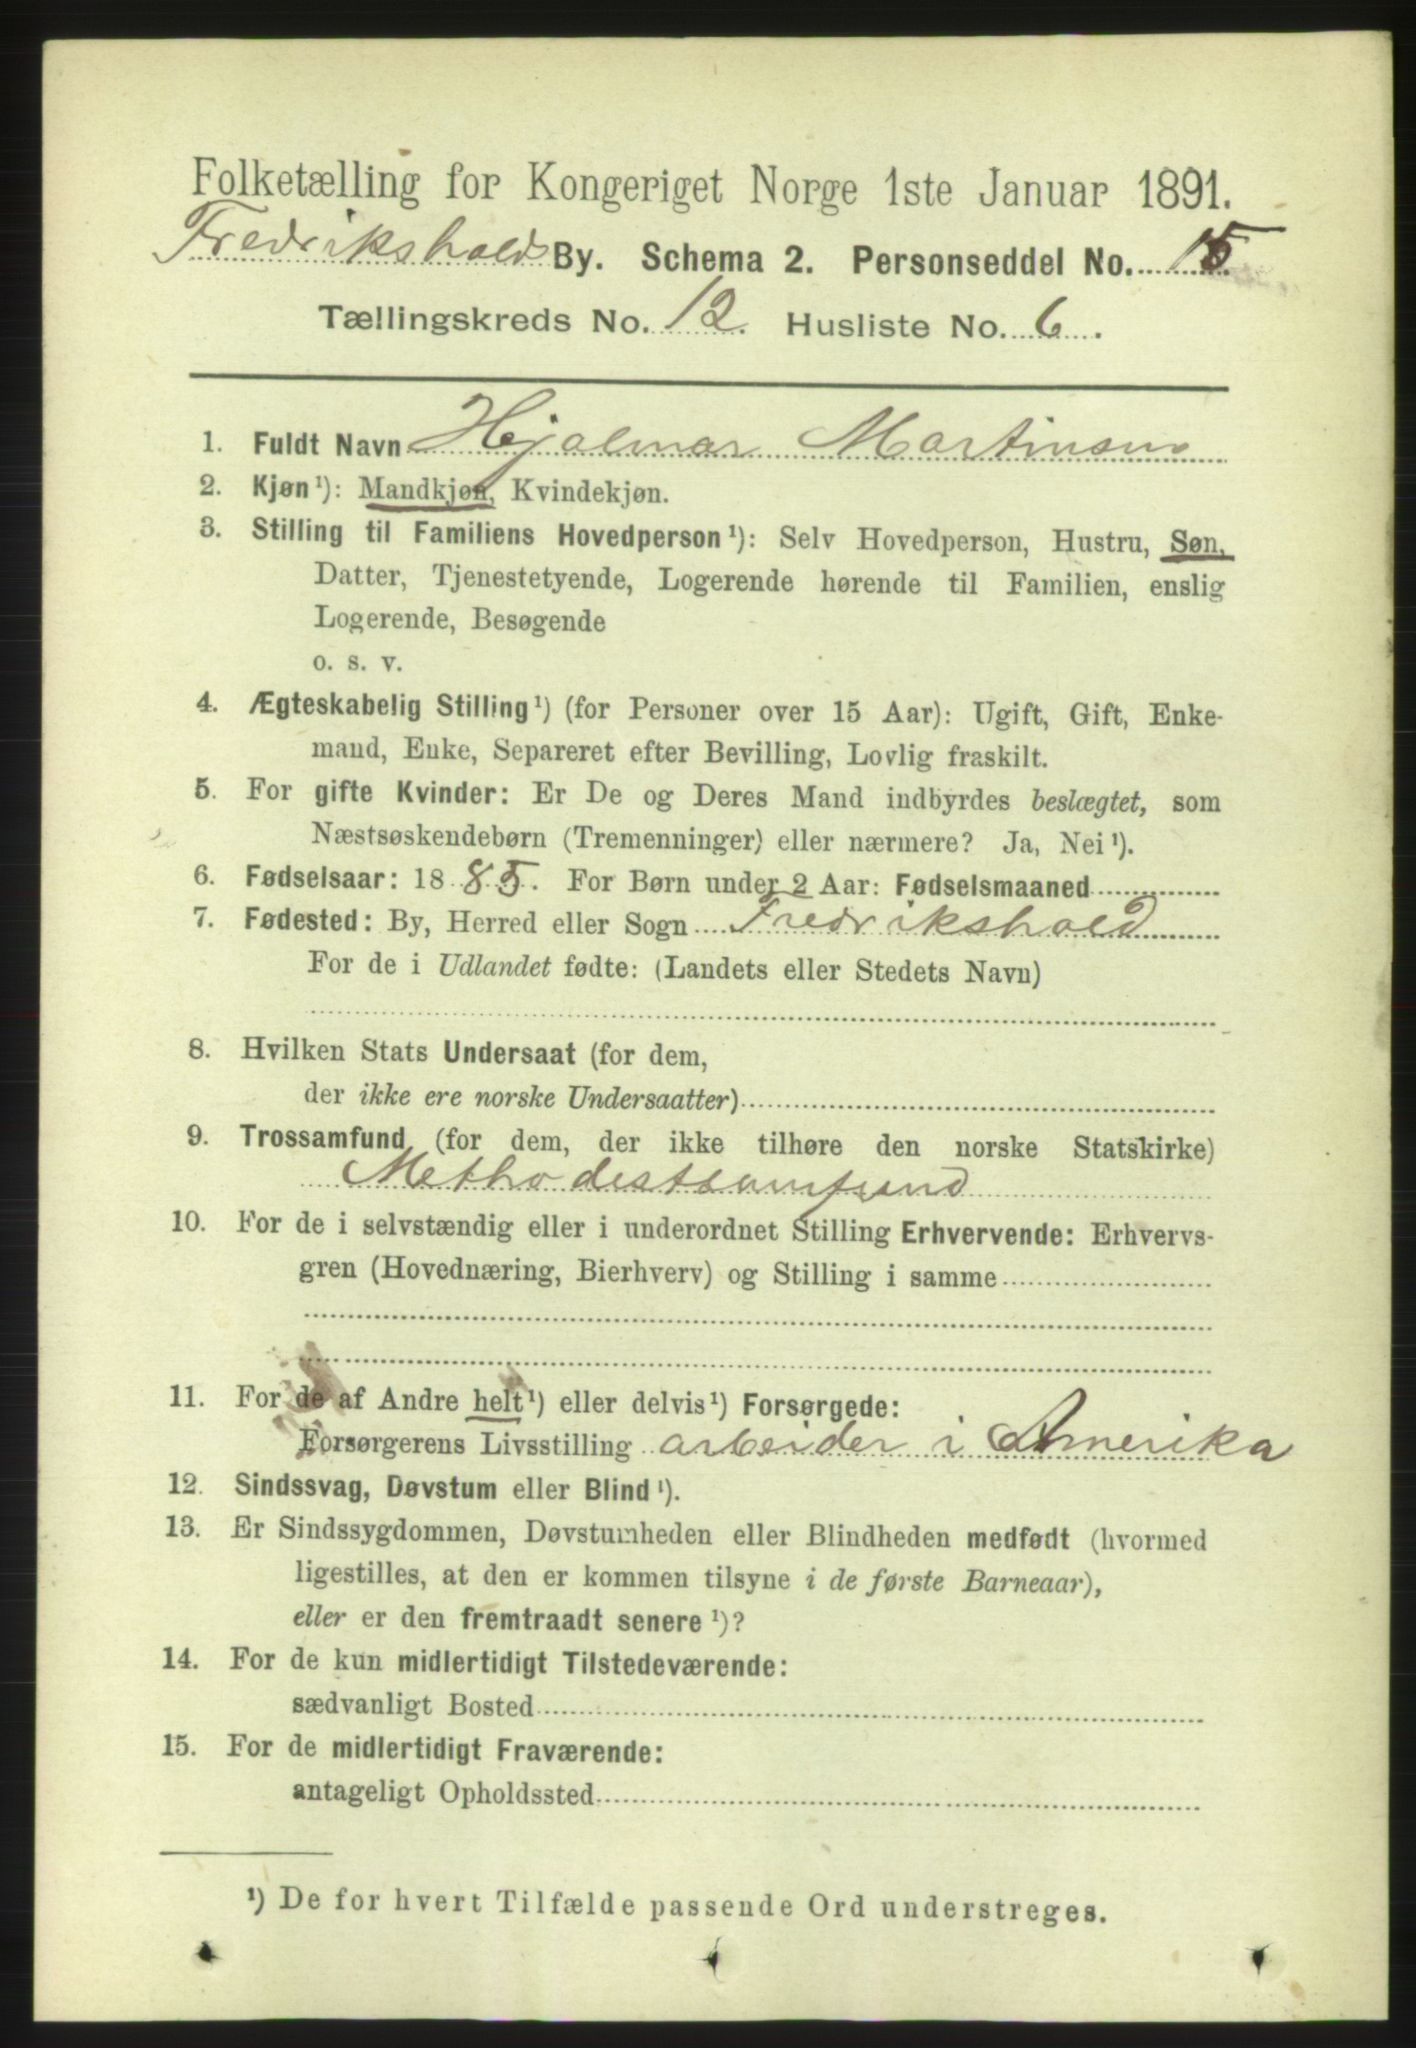 Folketælling for Kongeriget Norge 1ste Januar 1891.
Fredrikshalds By. Schema 2. Personseddel No. 15.
Tællingskreds No. 12. Husliste No. 6.
1. Fuldt Navn Hjalmar Martinsen
2. Kjøn ¹): Mandkjøn, Kvindekjøn.
3. Stilling til Familiens Hovedperson ¹): Selv Hovedperson, Hustru, Søn,
Datter, Tjenestetyende, Logerende hørende til Familien, enslig
Logerende, Besøgende
o. s. v.
4. Ægteskabelig Stilling ¹) (for Personer over 15 Aar): Ugift, Gift, Enke-
mand, Enke, Separeret efter Bevilling, Lovlig fraskilt.
5. For gifte Kvinder: Er De og Deres Mand indbyrdes beslægtet, som
Næstsøskendebørn (Tremenninger) eller nærmere? Ja, Nei ¹).
6. Fødselsaar: 1885. For Børn under 2 Aar: Fødselsmaaned
7. Fødested: By, Herred eller Sogn Fredrikshald
For de i Udlandet fødte: (Landets eller Stedets Navn)
8. Hvilken Stats Undersaat (for dem,
der ikke ere norske Undersaatter)
9. Trossamfund (for dem, der ikke tilhøre den norske Statskirke)
Methodestsamfund
10. For de i selvstændig eller i underordnet Stilling Erhvervende: Erhvervs-
gren (Hovednæring, Bierhverv) og Stilling i samme
11. For de af Andre helt ¹) eller delvis ¹) Forsørgede:
Forsørgerens Livsstilling arbeider i Amerika
12. Sindssvag, Døvstum eller Blind ¹).
13. Er Sindssygdommen, Døvstumheden eller Blindheden medfødt (hvormed
ligestilles, at den er kommen tilsyne i de første Barneaar),
eller er den fremtraadt senere ¹)?
14. For de kun midlertidigt Tilstedeværende:
sædvanligt Bosted
15. For de midlertidigt Fraværende:
antageligt Opholdssted
¹) De for hvert Tilfælde passende Ord understreges.